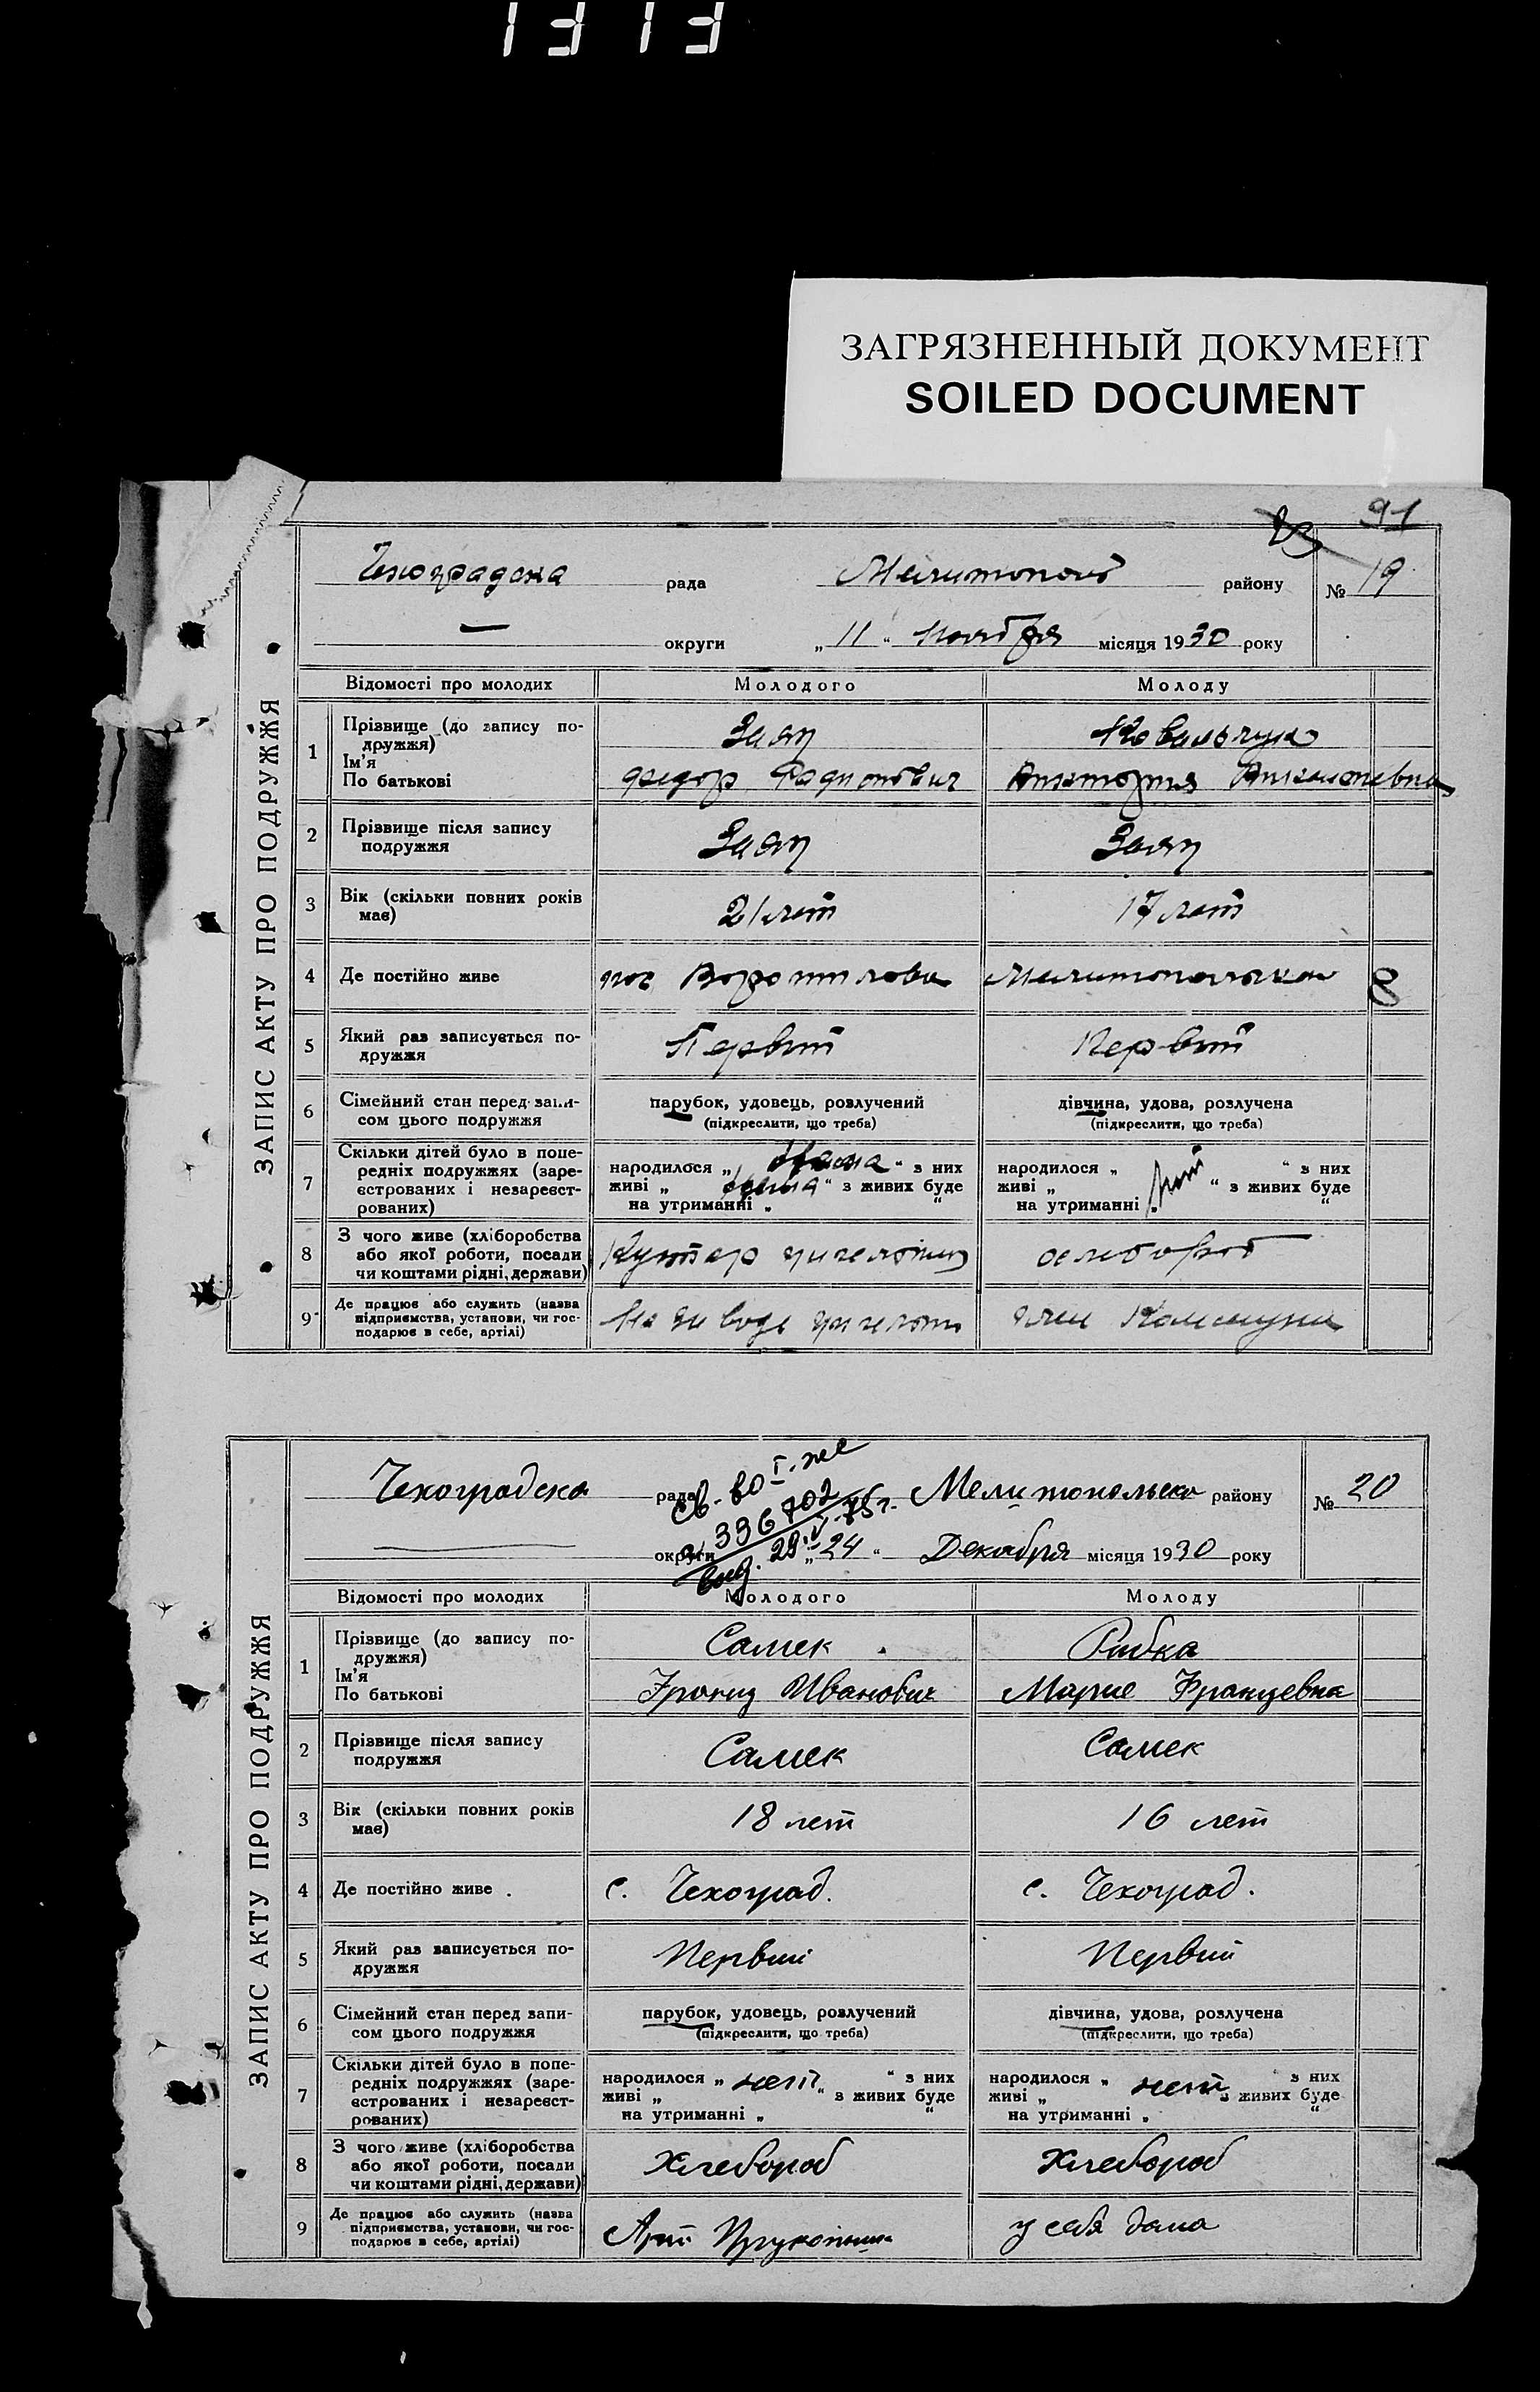 ЗАГРЯЗНЕННЫЙ ДОКУМЕНТ
SOILED DOCUMENT
91
ЗАПИС АКТУ ПРО ПОДРУЖЖЯ
рада Мелитополь району № 19
— округи „ 11 “ Ноября місяця 1930 року
Відомості про молодих Молодого Молоду
1 Прізвище (до запису по-
дружжя) Заяц Ковальчук
Ім'я
По батькові Федор Радионович Виктория
2 Прізвище після запису
подружжя Заяц Заяц
3 Вік (скільки повних років
має) 21 лет 17 лет
4 Де постійно живе пос Ворошилова
5 Який раз записується по-
дружжя Первий Первий
6 Сімейний стан перед запи-
сом цього подружжя парубок, удовець, розлучений дівчина, удова, розлучена
(підкреслити, що треба) (підкреслити, що треба)
7 Скільки дітей було в попе-
редніх подружжях (заре-
єстрованих і незареєст-
рованих) народилося „ “ з них народилося „ “ з них
живі „ “ з живих буде живі „ “ з живих буде
на утриманні „ “ на утриманні „ “
8 З чого живе (хліборобства
або якої роботи, посади
чи коштами рідні, держави)
9 Де працює або служить (назва
підприємства, установи, чи гос-
подарює в себе, артілі) член Комуни
ЗАПИС АКТУ ПРО ПОДРУЖЖЯ
Чехоградска рада Мелитопольск району № 20
св-во І-же
336702
выд. 29.IV-75г.
округи „ 24 “ Декабря місяця 1930 року
Відомості про молодих Молодого Молоду
1 Прізвище (до запису по-
дружжя) Самек Рибка
Ім'я
По батькові Франц Иванович Марие Францевна
2 Прізвище після запису
подружжя Самек Самек
3 Вік (скільки повних років
має) 18 лет 16 лет
4 Де постійно живе с. Чехоград. с. Чехоград.
5 Який раз записується по-
дружжя Первий Первий
6 Сімейний стан перед запи-
сом цього подружжя парубок, удовець, розлучений дівчина, удова, розлучена
(підкреслити, що треба) (підкреслити, що треба)
7 Скільки дітей було в попе-
редніх подружжях (заре-
єстрованих і незареєст-
рованих) народилося „ нет “ з них народилося „ нет “ з них
живі „ “ з живих буде живі „ “ з живих буде
на утриманні „ “ на утриманні „ “
8 З чого живе (хліборобства
або якої роботи, посади
чи коштами рідні, держави) Хлебороб Хлебороб
9 Де працює або служить (назва
підприємства, установи, чи гос-
подарює в себе, артілі) у себя дома